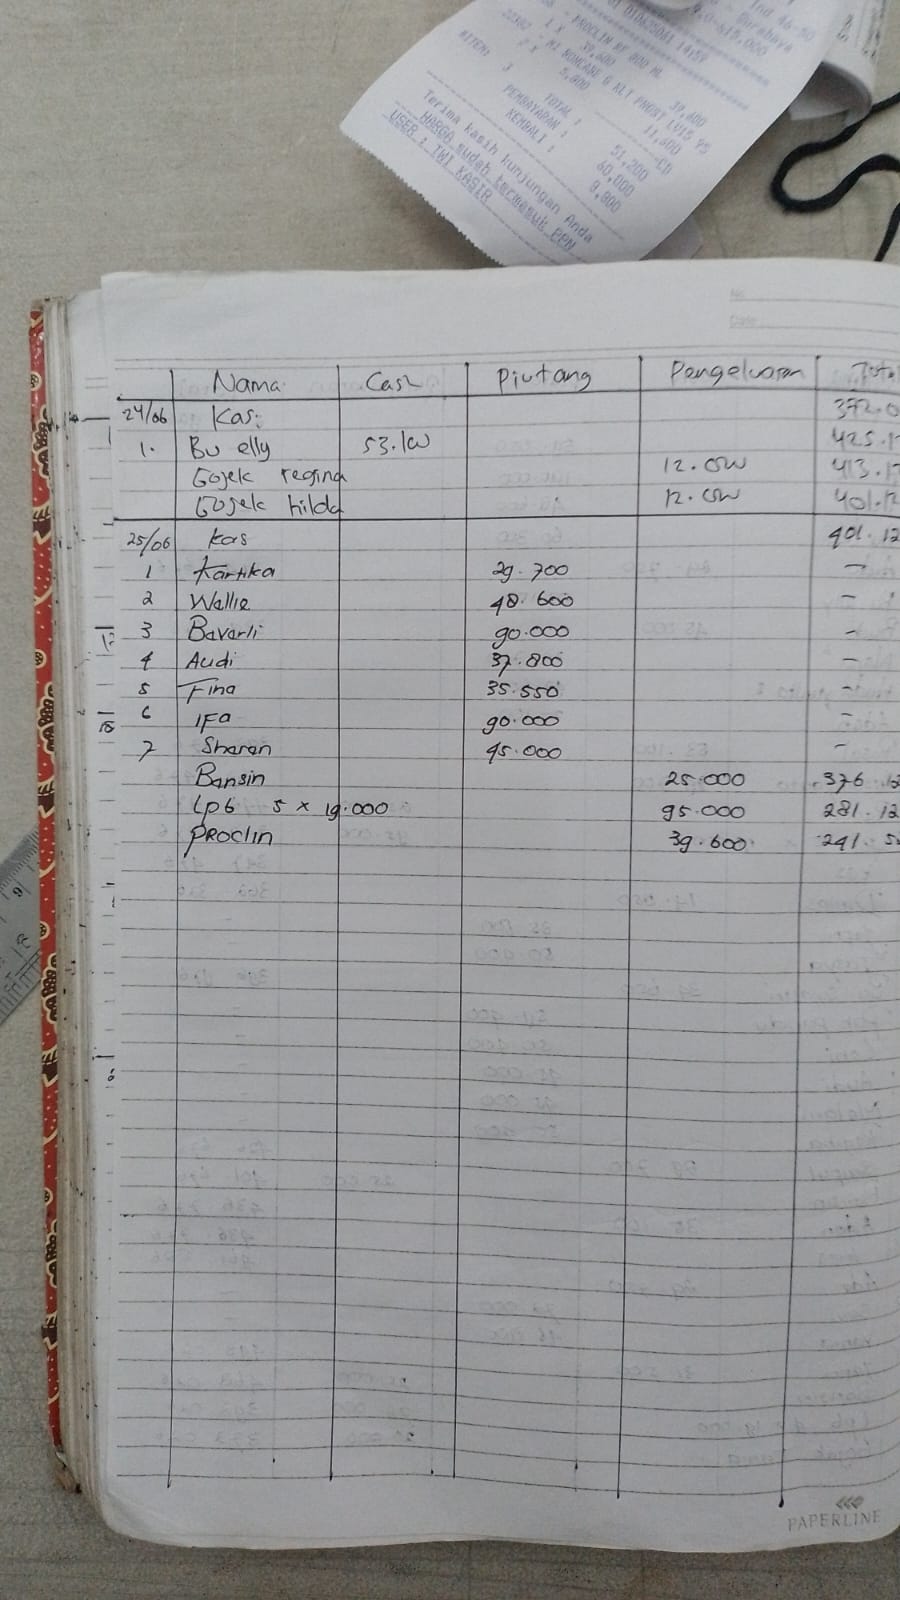 Ind 46-50
Surabaya
9.0-515,000
01 010625061 14:59
PROCLIN BF 800 ML
1 X 39,600 39,600
MI KONCANG G KLT PHORT LV15 95
2 X 5,800 11,600
#ITEM: 3
TOTAL : 51,200
PEMBAYARAN : 60,000 CD
KEMBALI : 8,800
Terima kasih kunjungan Anda
HARGA sudah termasuk PPN
USER : TWI KASIR
No
Date
Nama Cash Piutang Pengeluaran Total
24/06 Kas: 372.0
1. Bu elly 53.100 425.1
Gojek regina 12.000 413.12
Gojek hilda 12.000 401.12
25/06 kas 401.12
1 Kartika 29.700 -
2 Wallie 48.600 -
3 Bavarli 90.000 -
4 Audi 37.800 -
5 Fina 35.550 -
6 IFa 90.000 -
7 Sharon 45.000 -
Bansin 25.000 376.12
Lpb 5 x 19.000 95.000 281.12
PROClin 39.600 241.5
PAPERLINE